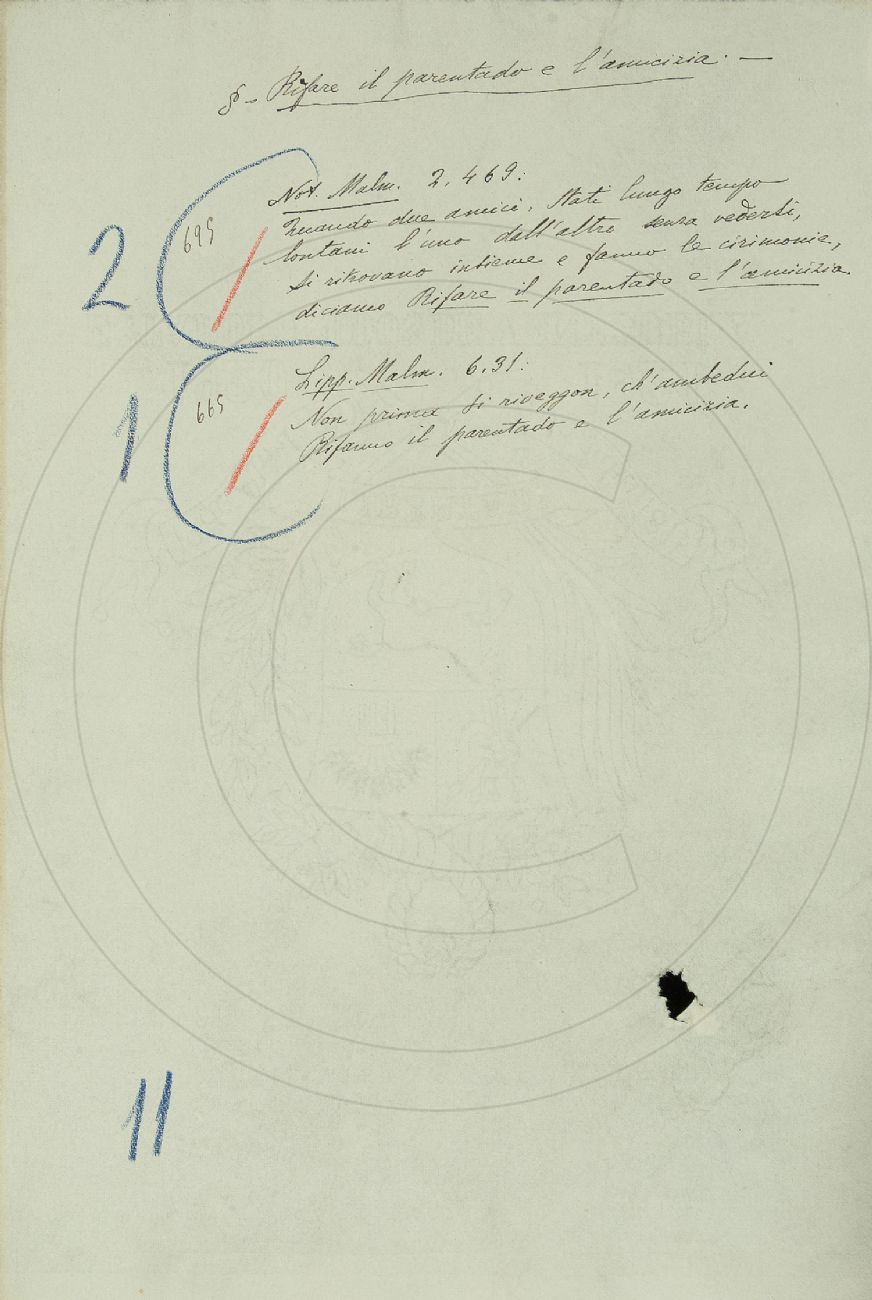 § - Rifare il parentado e l'amicizia. —
2
695
Not. Malm. 2. 469:
Quando due amici, stati lungo tempo
lontani l'uno dall'altro senza vedersi,
si ritrovano insieme e fanno le cirimonie,
diciamo Rifare il parentado e l'amicizia.
1
665
Lipp. Malm. 6.31:
Non prima si riveggon, ch'ambedui
Rifanno il parentado e l'amicizia.
11